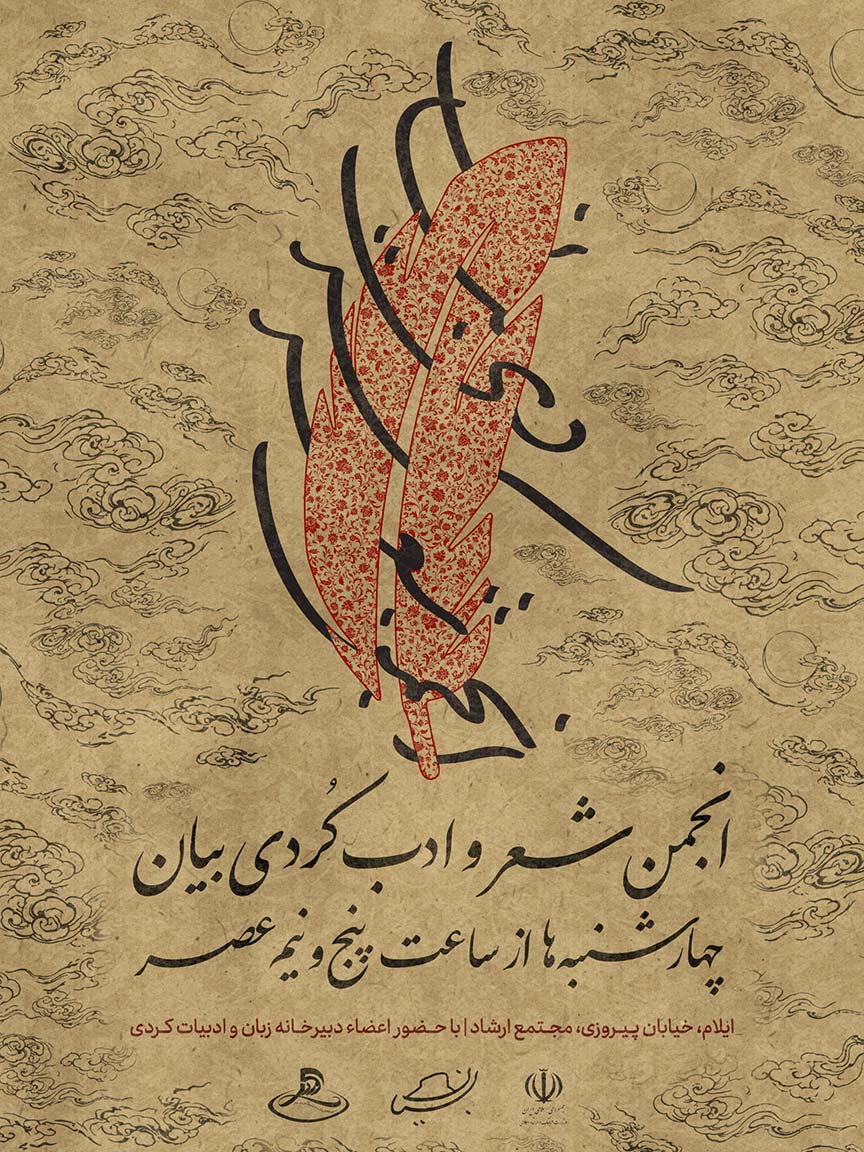 انجمن شعر و ادب کُردی بیان
چهارشنبه‌ها از ساعت پنج و نیم عصر
ایلام، خیابان پیروزی، مجتمع ارشاد | با حضور اعضاء دبیرخانه زبان و ادبیات کردی
بیان
جمهوری اسلامی ایران